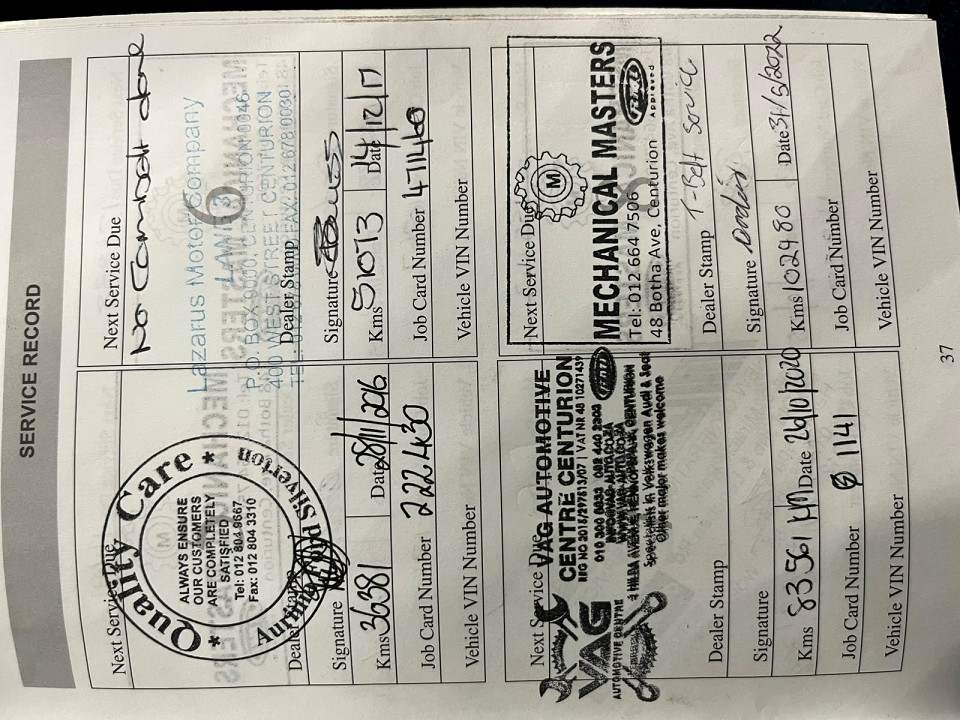 SERVICE RECORD
Next Service Due
Quality Care
ALWAYS ENSURE
OUR CUSTOMERS
ARE COMPLETELY
SATISFIED
Tel: 012 804 9667
Fax: 012 804 3310
Silverton
Signature
Kms 36381 Date 28/11/2016
Job Card Number 222 430
Vehicle VIN Number
Next Service Due
No Cambelt done
Lazarus Motor Company
P.O. BOX 9000, CENTURION 0046
400 WEST STREET CENTURION
Dealer Stamp
Signature
Kms 51073 Date 14/12/17
Job Card Number 471460
Vehicle VIN Number
Next Service Due
VAG AUTOMOTIVE
CENTRE CENTURION
REG NO 2015/297813/07 | VAT NR 48 10271439
VAG
AUTOMOTIVE CENTRE
Specialists in Volkswagen Audi & Seat
Other major makes welcome
Dealer Stamp
Signature
Kms 83561 km Date 26/10/2020
Job Card Number Ø 1141
Vehicle VIN Number
Next Service Due
M
MECHANICAL MASTERS
Tel: 012 664 7506
48 Botha Ave, Centurion
APPROVED
Dealer Stamp T-Belt Service
Signature
Kms 102480 Date 31/5/2022
Job Card Number
Vehicle VIN Number
37